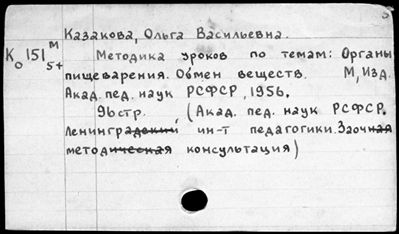 Казакова, Ольга Васильевна.
К₀ 151 М 5+ Методика уроков по темам: Органы
пищеварения. Обмен веществ. М, Изд.
Акад. пед. наук РСФСР, 1956.
96стр. (Акад. пед. наук РСФСР.
Ленинградский ин-т педагогики. Заочная
методическая консультация)